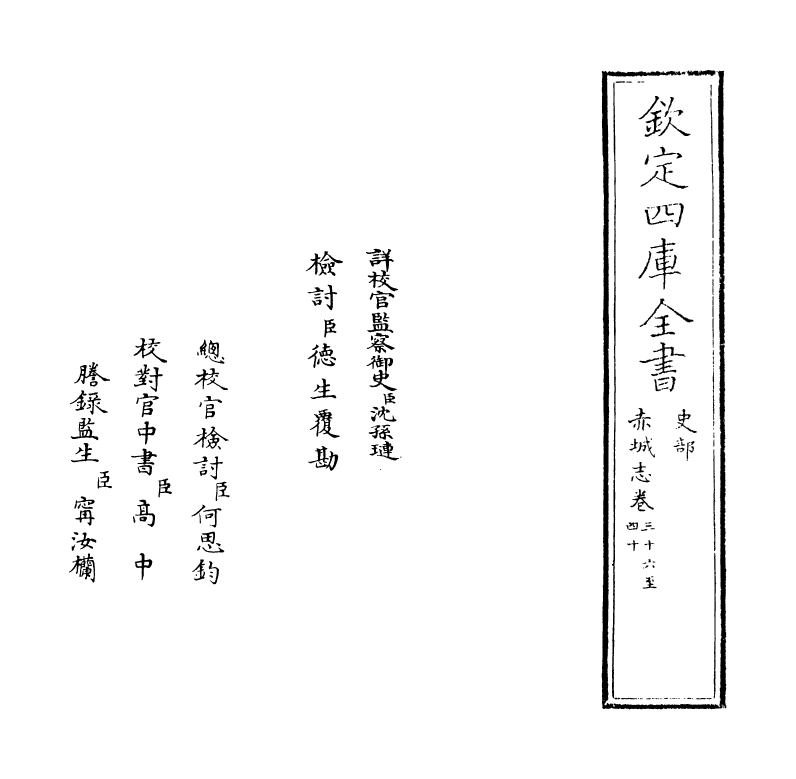 欽定四庫全書
史部
赤城志卷三十六至四十
詳校官監察御史臣沈孫璉
檢討臣德生覆勘
總校官檢討臣何思鈞
校對官中書臣高中
謄錄監生臣甯汝欄